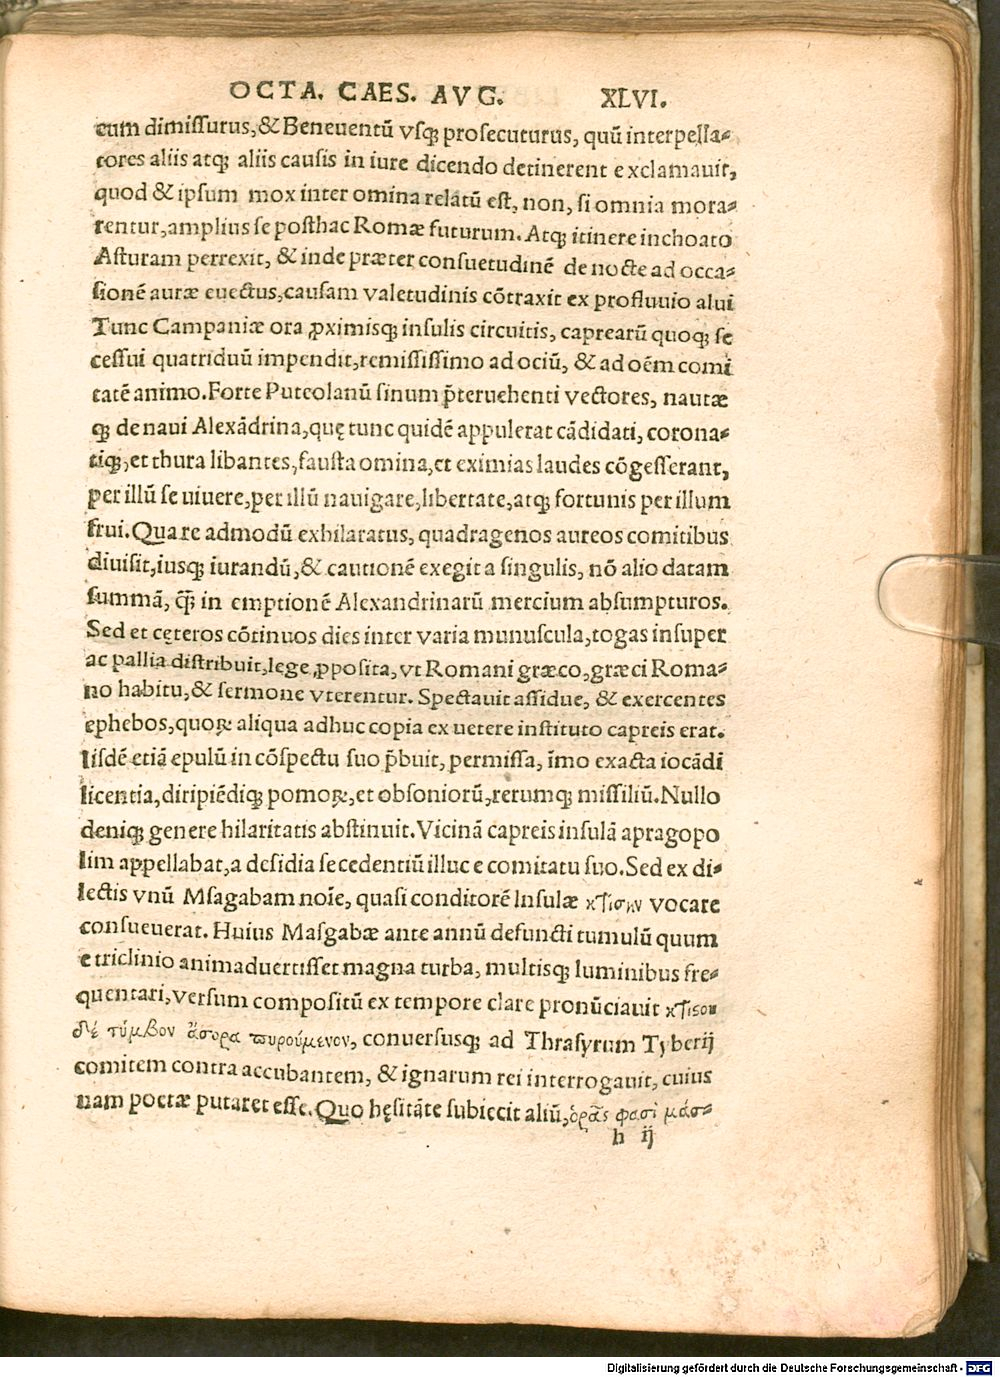 OCTA. CAES. AVG. XLVI.
cum dimissurus, & Beneuentū vsq; prosecuturus, quū interpella-
tores aliis atq; aliis causis in iure dicendo detinerent exclamauit,
quod & ipsum mox inter omina relatū est, non, si omnia mora-
rentur, amplius se posthac Romæ futurum. Atq; itinere inchoato
Asturam perrexit, & inde præter consuetudinē de nocte ad occa-
sionē auræ euectus, causam valetudinis cōtraxit ex profluuio alui
Tunc Campaniæ ora ꝓximisq; insulis circuitis, caprearū quoq; se
cessui quatriduū impendit, remississimo ad ociū, & ad oēm comi
tatē animo. Forte Puteolanū sinum p̄teruehenti vectores, nautæ
q; de naui Alexādrina, quę tunc quidē appulerat cādidati, corona-
tiq;, et thura libantes, fausta omina, et eximias laudes cōgesserant,
per illū se uiuere, per illū nauigare, libertate, atq; fortunis per illum
frui. Qua re admodū exhilaratus, quadragenos aureos comitibus
diuisit, iusq; iurandū, & cautionē exegit a singulis, nō alio datam
summā, q̄ȝ in emptionē Alexandrinarū mercium absumpturos.
Sed et cęteros cōtinuos dies inter varia munuscula, togas insuper
ac pallia distribuit, lege ꝓposita, vt Romani græco, græci Roma-
no habitu, & sermone vterentur. Spectauit assidue, & exercentes
ephebos, quoꝝ aliqua adhuc copia ex uetere instituto capreis erat.
Iisdē etiā epulū in cōspectu suo p̄buit, permissa, īmo exacta iocādi
licentia, diripiēdiq; pomoꝝ, et obsoniorū, rerumq; missiliū. Nullo
deniq; genere hilaritatis abstinuit. Vicinā capreis insulā apragopo
lim appellabat, a desidia secedentiū illuc e comitatu suo. Sed ex di-
lectis vnū Msagabam noīe, quasi conditorē Insulæ κτισην vocare
consueuerat. Huius Masgabæ ante annū defuncti tumulū quum
e triclinio animaduertisset magna turba, multisq; luminibus fre-
quentari, versum compositū ex tempore clare pronūciauit κτιςου
δὲ τύμβον ἄσορα πυρούμενον, conuersusq; ad Thrasyrum Tyberij
comitem contra accubantem, & ignarum rei interrogauit, cuius
nam poetæ putaret esse. Quo hęsitāte subiecit aliū, ὁρᾶς φασὶ μάσ-
h ij
Digitalisierung gefördert durch die Deutsche Forschungsgemeinschaft - DFG